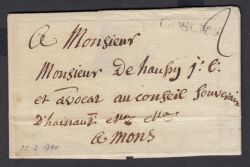 A Monsieur
Monsieur De haussy j.c.
et avocat au conseil Souverain
D'hainaut etc etc
a Mons
22-2-1790